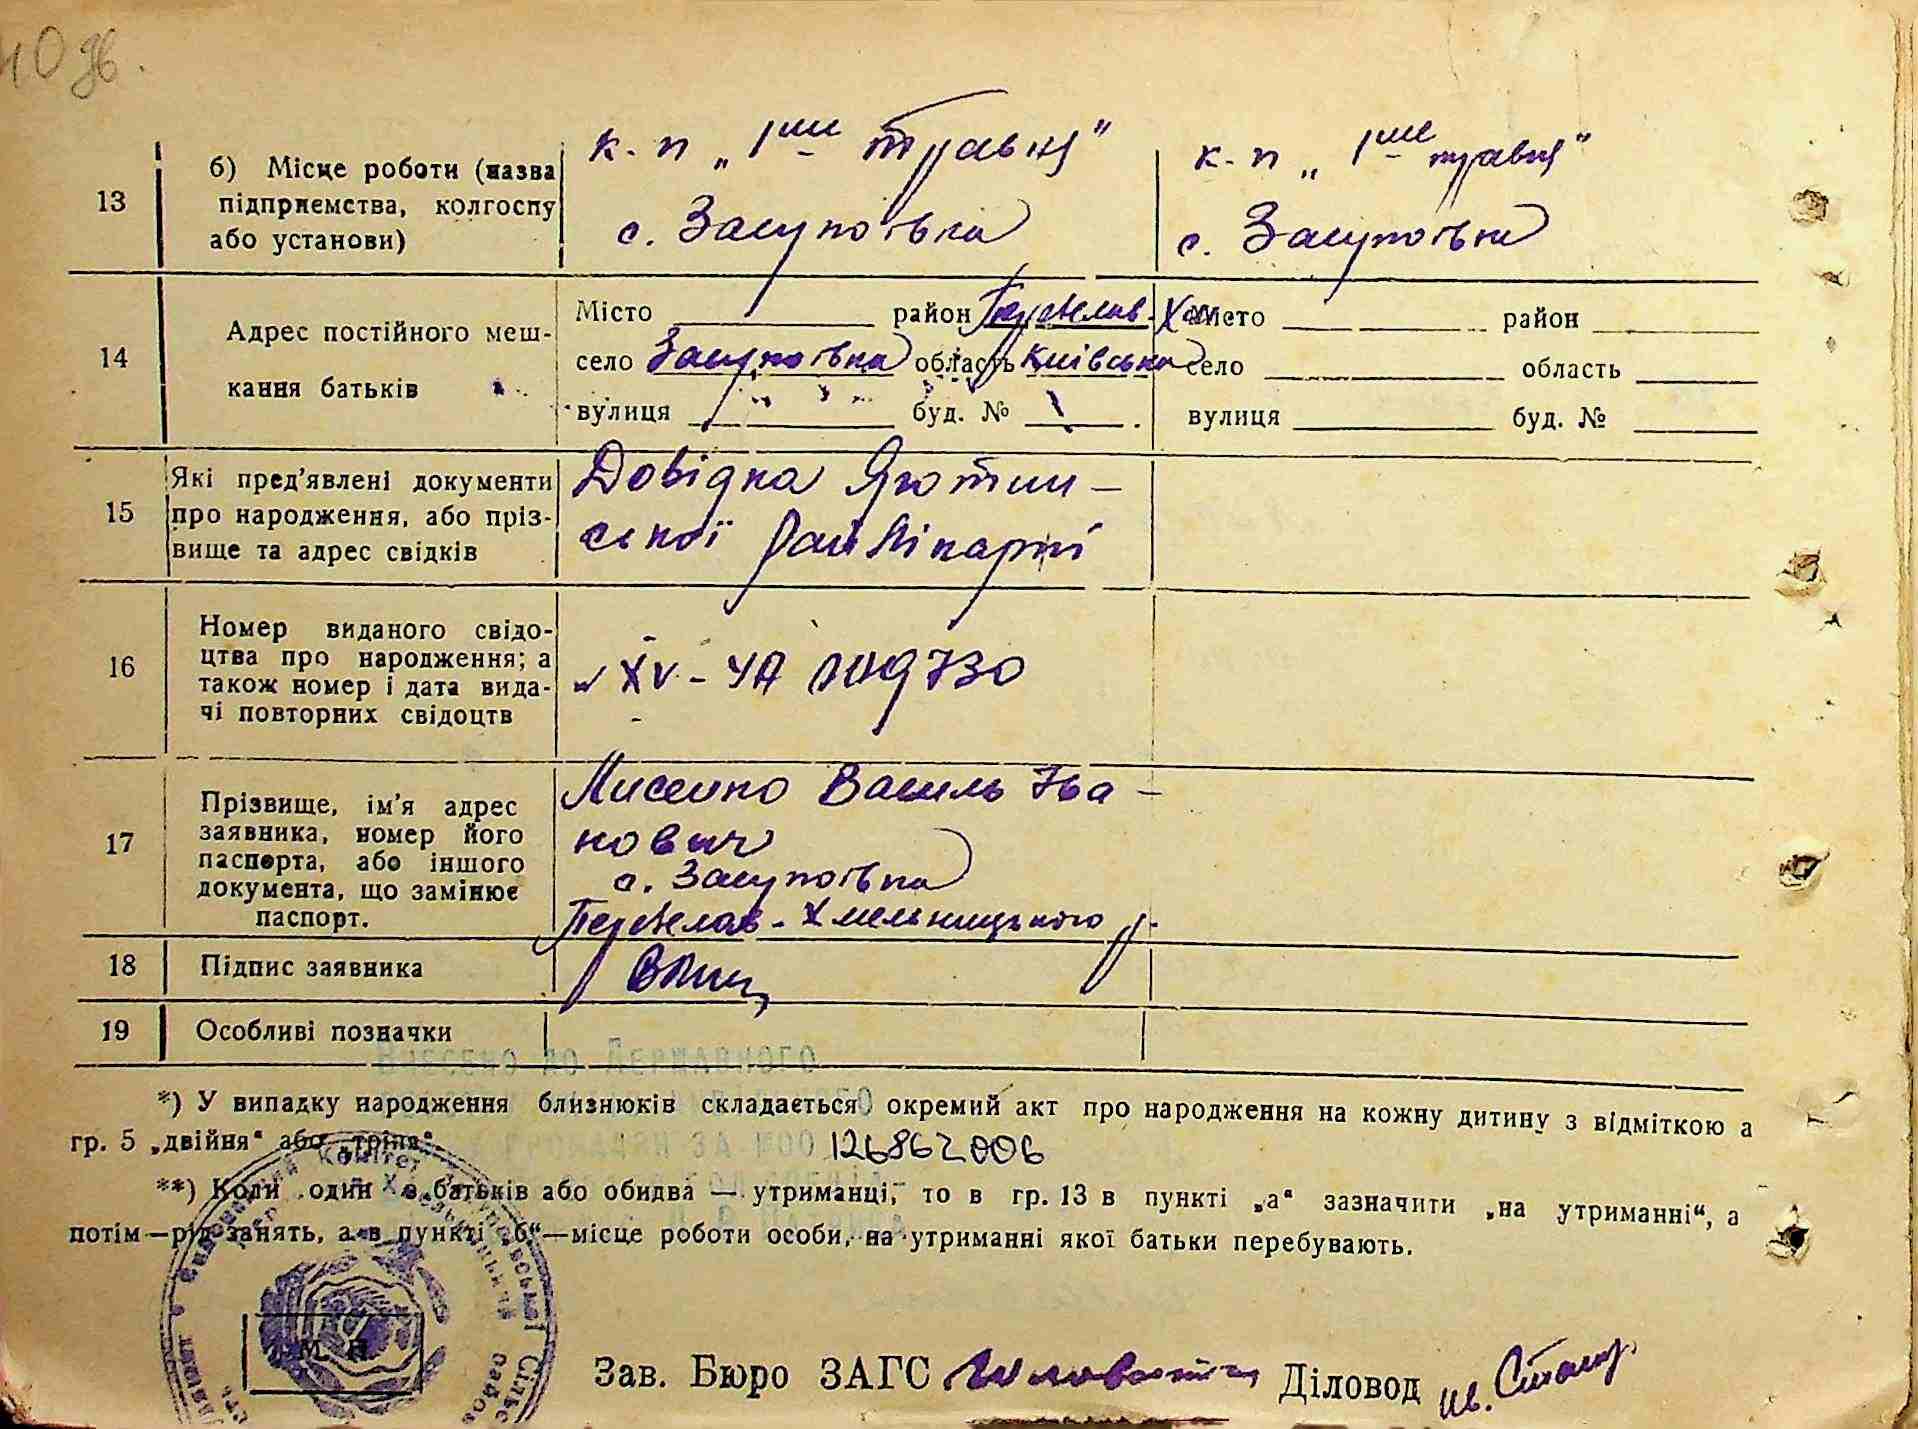 40 зв.
13 б) Місце роботи (назва підприємства, колгоспу або установи)
к-п „1ше травня"
с. Засупоївка
к-п „1ше травня"
с. Засупоївка
14 Адрес постійного меш-
кання батьків
Місто район Переяслав-Хм.
село Засупоївка область Київська
вулиця буд. №
Місто район
село область
вулиця буд. №
15 Які пред'явлені документи
про народження, або пріз-
вище та адрес свідків
Довідка Яготин-
ської райлікарні
16 Номер виданого свідо-
цтва про народження; а
також номер і дата вида-
чі повторних свідоцтв
XV-ЧА
17 Прізвище, ім'я адрес
заявника, номер його
паспорта, або іншого
документа, що замінює
паспорт.
Лисенко Василь Іва-
нович
с. Засупоївка
Переяслав-Хмельницького р.
18 Підпис заявника
19 Особливі позначки
Внесено до Державного
*) У випадку народження близнюків складається окремий акт про народження на кожну дитину з відміткою а
гр. 5 „двійня“ або „трійня“
громадян за №00 126862006
**) Коли один з батьків або обидва — утриманці, то в гр. 13 в пункті „а“ зазначити „на утриманні“, а
потім—рід занять, а в пункті „б“—місце роботи особи, на утриманні якої батьки перебувають.
М. П.
Зав. Бюро ЗАГС Діловод